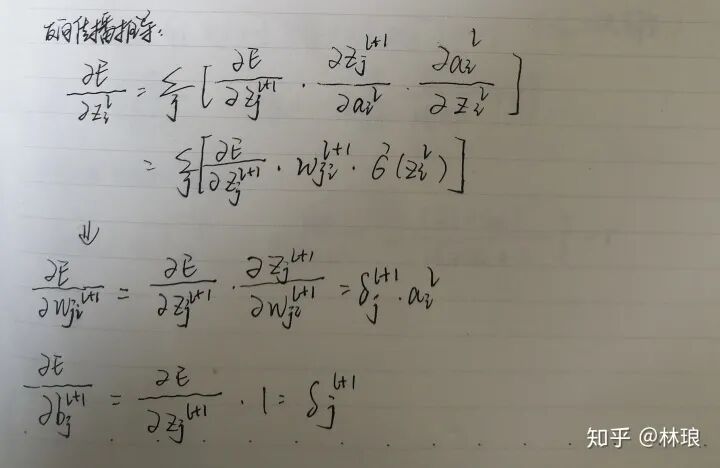 反向传播推导:
∂E/∂z_i^l = Σ_j [ ∂E/∂z_j^{l+1} · ∂z_j^{l+1}/∂a_i^l · ∂a_i^l/∂z_i^l ]
= Σ_j [ ∂E/∂z_j^{l+1} · w_{ji}^{l+1} · σ'(z_i^l) ]
⇓
∂E/∂w_{ji}^{l+1} = ∂E/∂z_j^{l+1} · ∂z_j^{l+1}/∂w_{ji}^{l+1} = δ_j^{l+1} · a_i^l
∂E/∂b_j^{l+1} = ∂E/∂z_j^{l+1} · 1 = δ_j^{l+1}
知乎 @林琅